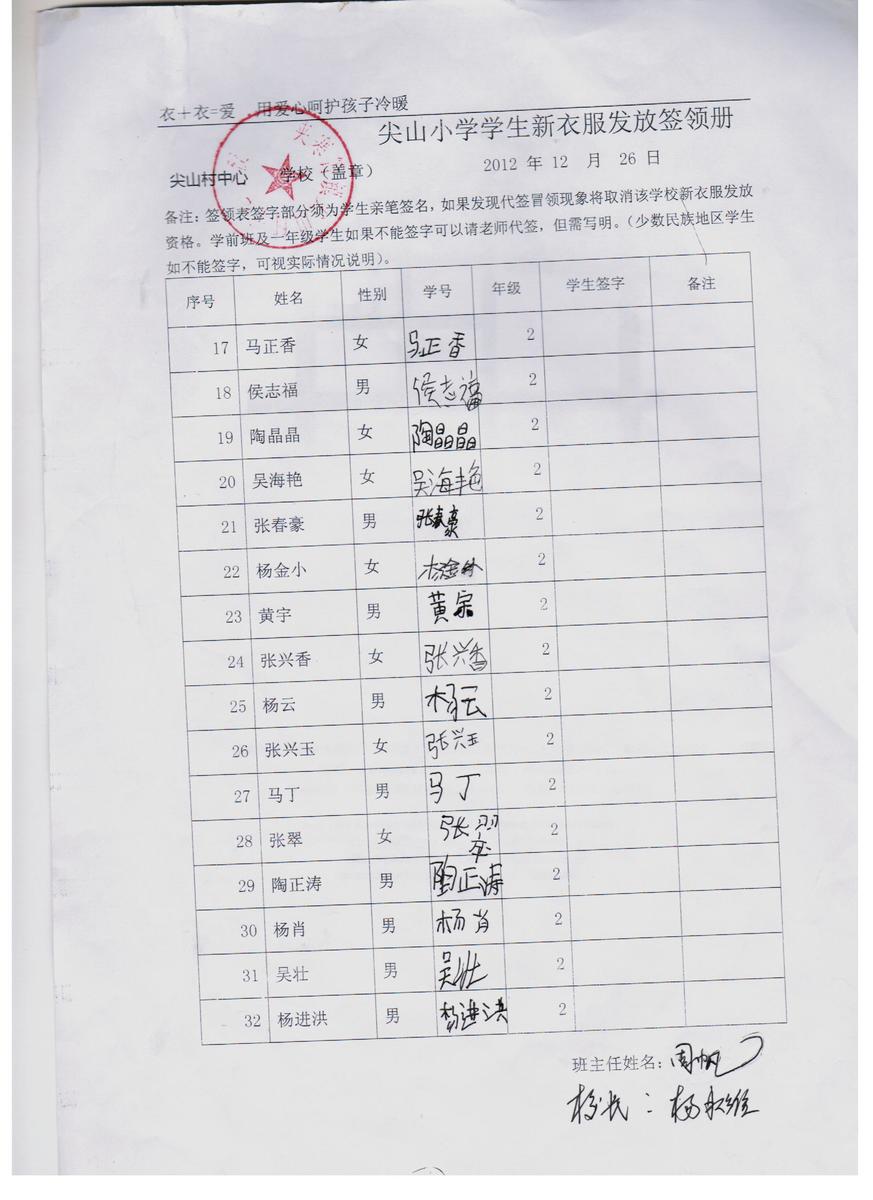 衣+衣=爱 用爱心呵护孩子冷暖
尖山小学学生新衣服发放签领册
尖山村中心 学校（盖章） 2012 年 12 月 26 日
备注：签领表签字部分须为学生亲笔签名，如果发现代签冒领现象将取消该学校新衣服发放
资格。学前班及一年级学生如果不能签字可以请老师代签，但需写明。（少数民族地区学生
如不能签字，可视实际情况说明）。
序号 姓名 性别 学号 年级 学生签字 备注
17 马正香 女 马正香 2
18 侯志福 男 侯志福 2
19 陶晶晶 女 陶晶晶 2
20 吴海艳 女 吴海艳 2
21 张春豪 男 张春豪 2
22 杨金小 女 杨金 2
23 黄宇 男 黄宗 2
24 张兴香 女 张兴香 2
25 杨云 男 杨云 2
26 张兴玉 女 张兴玉 2
27 马丁 男 马丁 2
28 张翠 女 张翠 2
29 陶正涛 男 陶正涛 2
30 杨肖 男 杨肖 2
31 吴壮 男 吴壮 2
32 杨进洪 男 杨进洪 2
班主任姓名：周帆
校长：杨